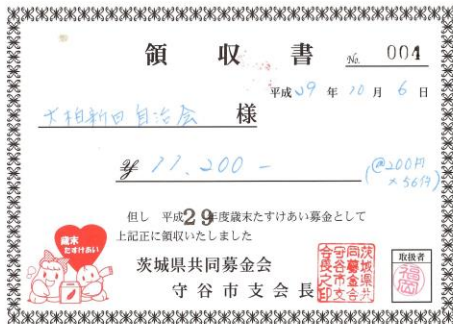 領収書 No. 004
平成29年10月6日
大柏新田自治会 様
¥ 11.200 -
(@200円
×56件)
但し 平成29年度歳末たすけあい募金として
上記正に領収いたしました
歳末
たすけあい
茨城県共同募金会
守谷市支会長
茨城県共
同募金会
守谷市支
会長之印
取扱者
福岡